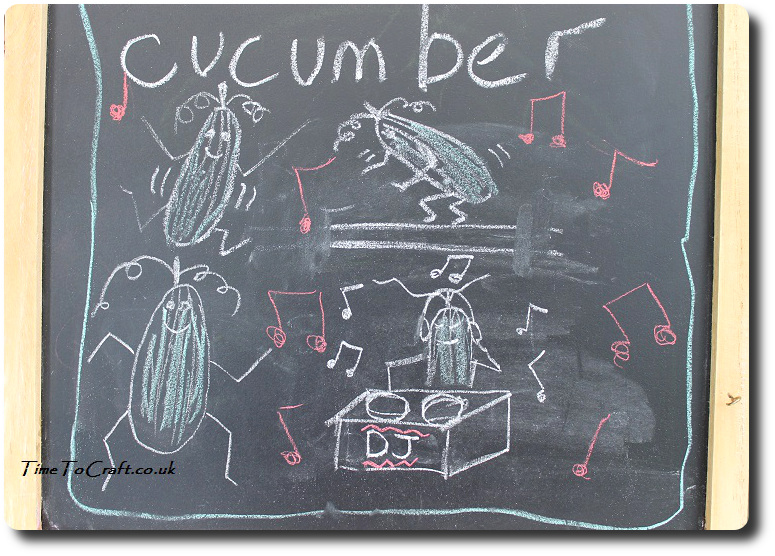 cucumber
DJ
TimeToCraft.co.uk